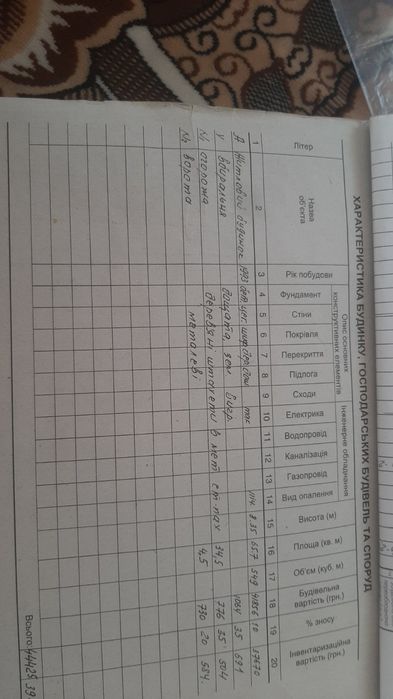 ХАРАКТЕРИСТИКА БУДИНКУ, ГОСПОДАРСЬКИХ БУДІВЕЛЬ ТА СПОРУД
Літер
Назва об'єкта
Рік побудови
Опис основних конструктивних елементів
Фундамент
Стіни
Покрівля
Перекриття
Підлога
Сходи
Інженерне обладнання
Електрика
Водопровід
Каналізація
Газопровід
Вид опалення
Висота (м)
Площа (кв. м)
Об'єм (куб. м)
Будівельна вартість (грн.)
% зносу
Інвентаризаційна вартість (грн.)
1 2 3 4 5 6 7 8 9 10 11 12 13 14 15 16 17 18 19 20
А Житловий будинок 1993 цег. шиф. так 8.35 65.7 549 10 37670
У Вбиральня дощата, зем 1064 35 691
№1 огорожа дерев'яні штахети в мет 34,5 776 35 504
№2 ворота металеві 4,5 730 20 584.
Всього 39